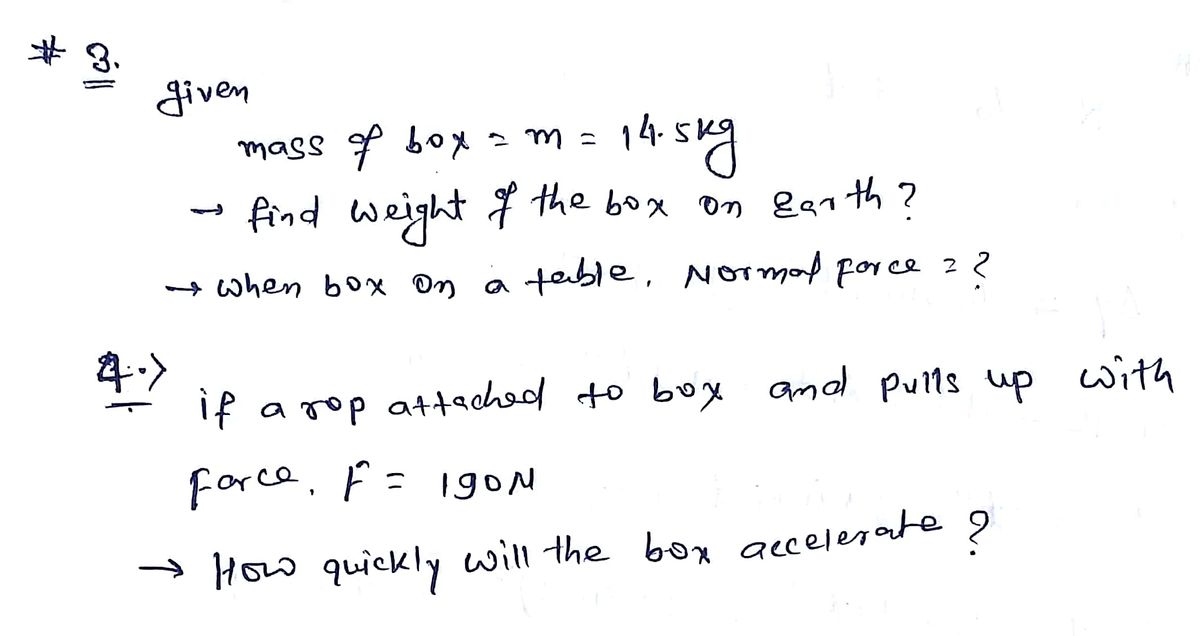 # 3.
given
mass of box = m = 14.5kg
→ find weight of the box on earth?
→ when box on a table, Normal force = ?
4.>
if a rop attached to box and pulls up with
force, F = 190N
→ How quickly will the box accelerate?